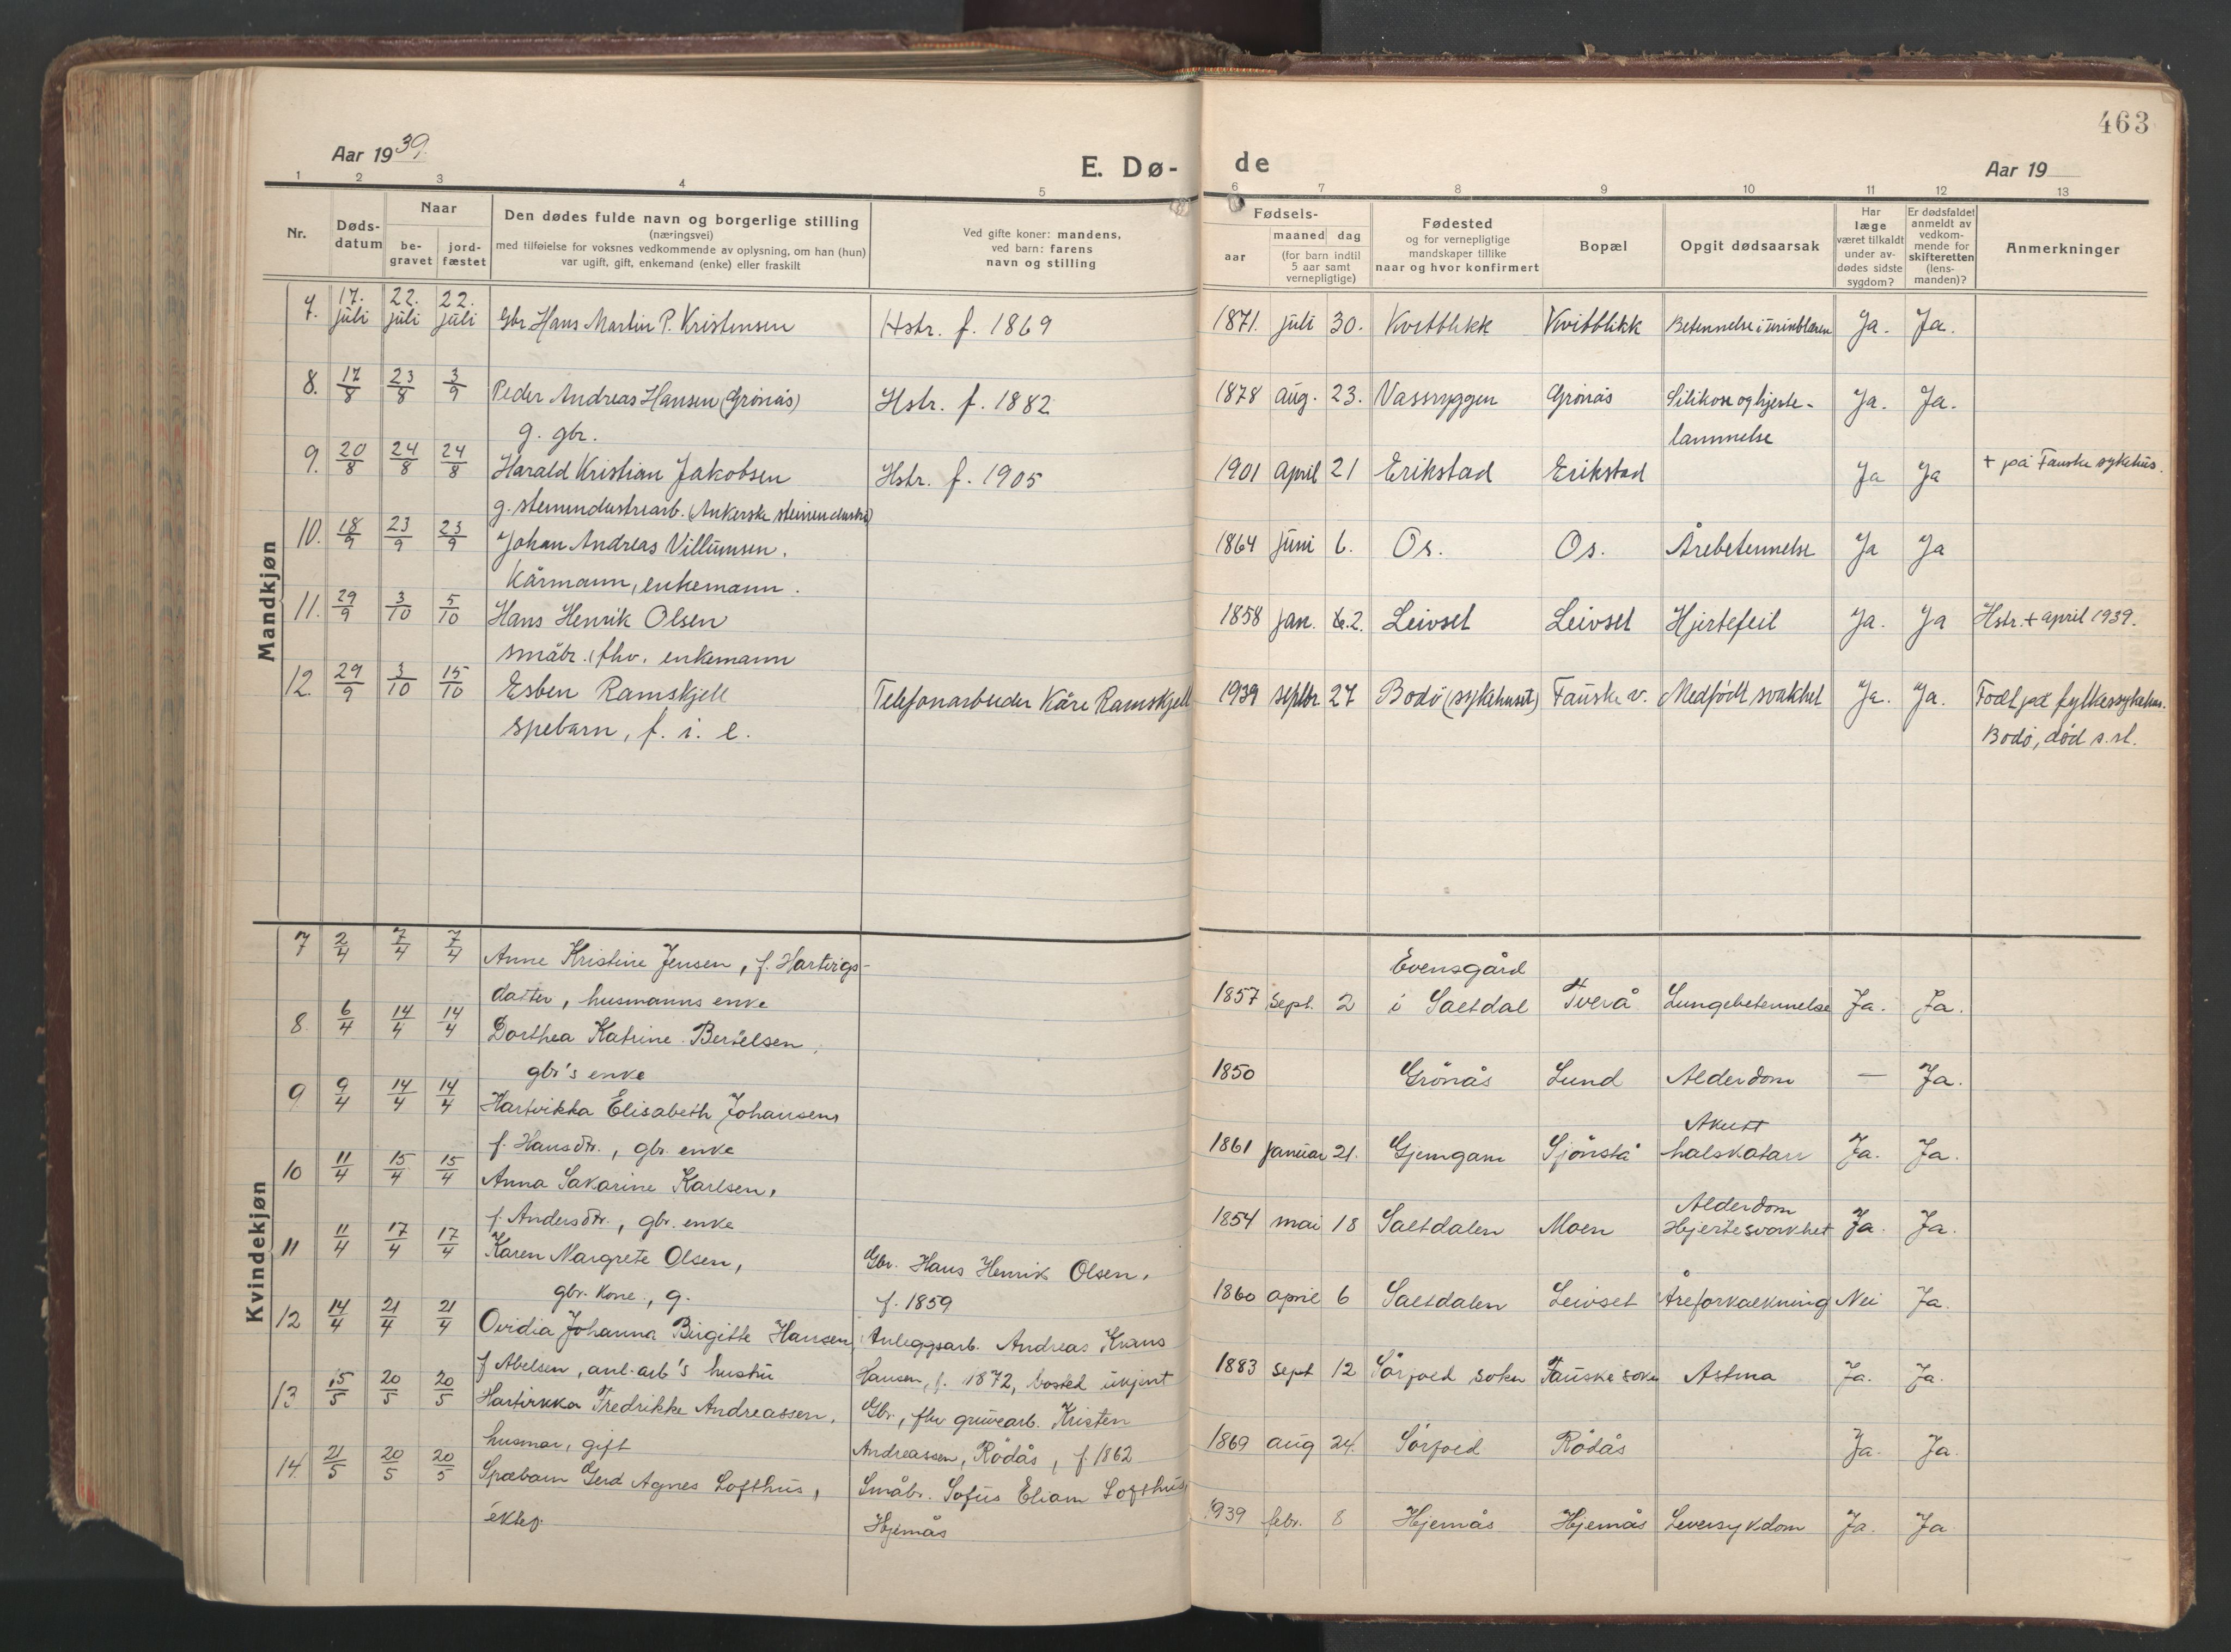 463
Aar 1939.
E. Dø-
de
Aar 19
1 2 3 4 5 6 7 8 9 10 11 12 13
Nr.
Døds-
datum
Naar
be-
gravet
jord-
fæstet
Den dødes fulde navn og borgerlige stilling
(næringsvei)
med tilføielse for voksnes vedkommende av oplysning, om han (hun)
var ugift, gift, enkemand (enke) eller fraskilt
Ved gifte koner: mandens,
ved barn: farens
navn og stilling
Fødsels-
aar
maaned dag
(for barn indtil
5 aar samt
vernepligtige)
Fødested
og for vernepligtige
mandskaper tillike
naar og hvor konfirmert
Bopæl
Opgit dødsaarsak
Har
læge
været tilkaldt
under av-
dødes sidste
sygdom?
Er dødsfaldet
anmeldt av
vedkom-
mende for
skifteretten
(lens-
manden)?
Anmerkninger
Mandkjøn
7. 17. juli 22. juli 22. juli Gbr Hans Martin P. Kristensen Hstr. f. 1869 1871. juli 30. Kvitblikk Kvitblikk Betennelse i urinblæren Ja. Ja.
8. 17/8 23/8 3/9 Peder Andreas Hansen (Grönås) Hstr. f. 1882 1878 aug. 23. Vassryggen Grönås Silikose og hjerte- Ja. Ja.
g. gbr. lammelse
9. 20/8 24/8 24/8 Harald Kristian Jakobsen Hstr. f. 1905 1901 april 21 Erikstad Erikstad Ja Ja + på Fauske sykehus.
g. stenindustriarb. (Ankerske steinindustri)
10. 18/9 23/9 23/9 Johan Andreas Villumsen. 1864 juni 6. Os. Os. Årebetennelse Ja Ja
Kårmann, enkemann.
11. 29/9 3/10 5/10 Hans Henrik Olsen 1858 jan. 2. Leivset Leivset Hjertefeil Ja. Ja Hstr. + april 1939.
småbr. fhv. enkemann
12. 29/9 3/10 15/10 Esben Ramskjell Telefonarbeider Kåre Ramskjell 1939 septbr. 27 Bodö (sykehuset) Fauske v. Medfödt svakhet Ja. Ja. Födt på fylkessykehus.
spebarn, f. i. e. Bodö, död s. st.
Kvindekjøn
7 2/4 7/4 7/4 Anne Kristine Jensen, f. Hartvigs-
datter, husmanns enke 1857 sept. 2 Evensgård i Saltdal Tverå Lungebetennelse Ja. Ja.
8 6/4 14/4 14/4 Dorthea Katrine Bertelsen,
gbr's enke 1850 Grönås Lund Alderdom — Ja.
9 9/4 14/4 14/4 Hartvikka Elisabeth Johansens
f. Hansdtr., gbr. enke 1861 januar 21. Gjemgam Sjönstå Akutt halskatarr Ja. Ja.
10 11/4 15/4 15/4 Anna Sakarine Karlsen,
f. Andersdtr., gbr. enke 1854 mai 18 Saltdalen Moen Alderdom Hjertesvakhet Ja. Ja.
11 11/4 17/4 17/4 Karen Margrete Olsen, Gbr. Hans Henrik Olsen,
gbr. kone, g. f. 1859 1860 april 6 Saltdalen Leivset Åreforkalkning Nei Ja.
12 14/4 21/4 21/4 Ovidia Johanna Birgitte Hansen Anleggsarb. Andreas Kraus
f Abelsen, anl. arb's hustru Hansen, f. 1872, bosted ukjent 1883 sept 12 Sörfold sokn Fauske sokn Astma Ja. Ja.
13 15/5 20/5 20/5 Hartvikka Fredrikke Andreassen, Gbr, fhv gruvearb. Kristen
husmor, gift Andreassen, Rödås, f. 1862 1869 aug 24. Sörfold Rödås Ja. Ja.
14. 21/5 20/5 20/5 Spæbarn Gerd Agnes Lofthus, Småbr. Sofus Eliam Lofthus,
ektef. Hjemås 1939 febr. 8 Hjemås Hjemås Leversykdom Ja. Ja